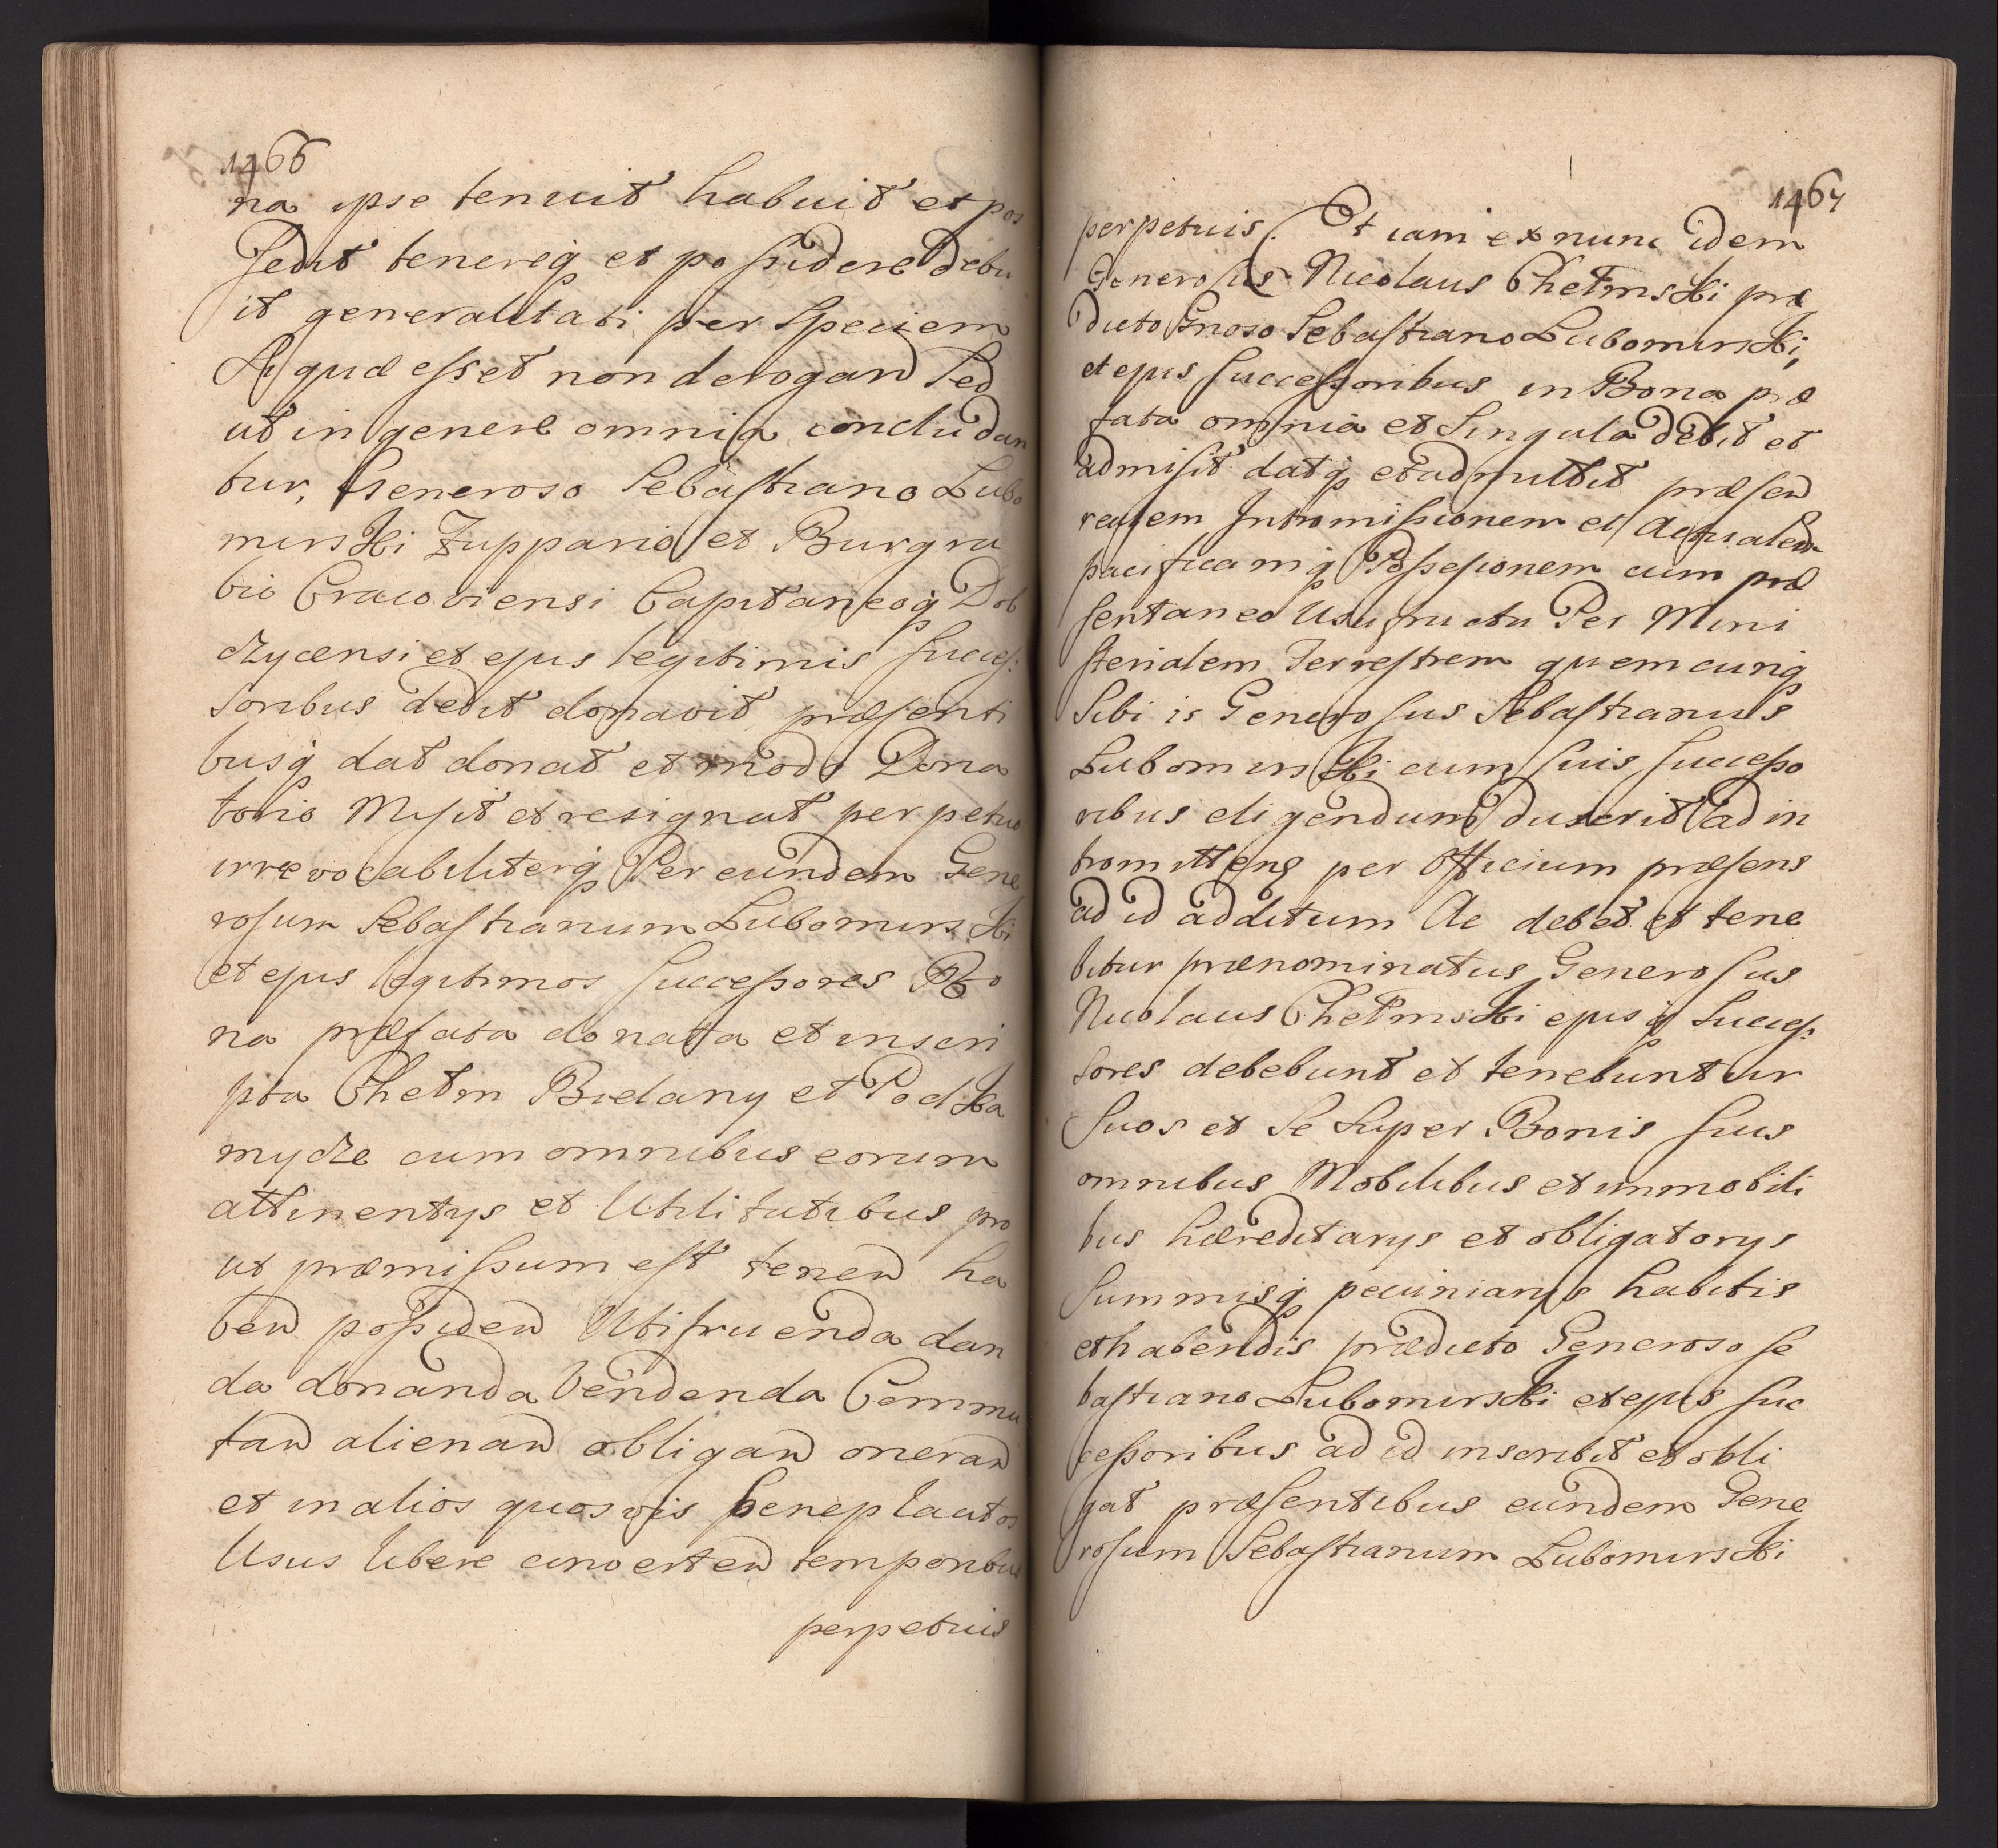 1466
na ipse tenuit habuit et pos
sedit tenereq₃ et possidere debu
it generalitati per speciem
Si quæ esset non derogand sed
ut in genere omnia concludan
tur, Generoso Sebastiano Lubo
mirski Zuppario et Burgra
bio Cracoviensi Capitaneoq₃ Dob
czycensi et ejus legitimis succes:
soribus dedit donavit præsenti
busq₃ dat donat et modo Dona
torio Misit et resignat perpetuo
irrevocabiliterq₃ Per eundem Gene
rosum Sebastianum Lubomirski
et ejus legitimos successores Bo
na præfata donata et inscri
pta Chełm Bielany et Podka
mycze cum omnibus eorum
attinentys et Utilitatibus pro
ut præmissum est tenend ha
bend possidend Utifruenda dan
da donanda Vendenda Commu
tand alienand obligand onerand
et in alios quosvis beneplacitos
Usus libere convertend temporibus
perpetuis
1467
perpetuis. Et iam ex nunc idem
Generosus Nicolaus Chełmski præ
dicto Gnoso Sebastiano Lubomirski,
et ejus successoribus in Bona præ
fata omnia et Singula dedit et
admisit datq₃ et admittit præsend
realem Intromissionem et Actualem
pacificamq₃ Possesionem cum præ
sentaneo Usufructu Per Mini
sterialem Terrestrem quemcunq₃
Sibi is Generosus Sebastianus
Lubomirski cum suis successo
ribus eligendum duxerit ad in
tromittens per Officium præsens
ad id additum Ac debet et tene
bitur prænominatus Generosus
Nicolaus Chełmski ejusq₃ Succes:
sores debebunt et tenebuntur
Suos et Se Super Bonis suis
omnibus Mobilibus et immobili
bus hæreditarys et obligatorys
Summisq₃ pecuniarys habitis
et habendis prædicto Generoso Se
bastiano Lubomirski et ejus suc
cessoribus ad id inscribit et obli
gat præsentibus eundem Gene
rosum Sebastianum Lubomirski